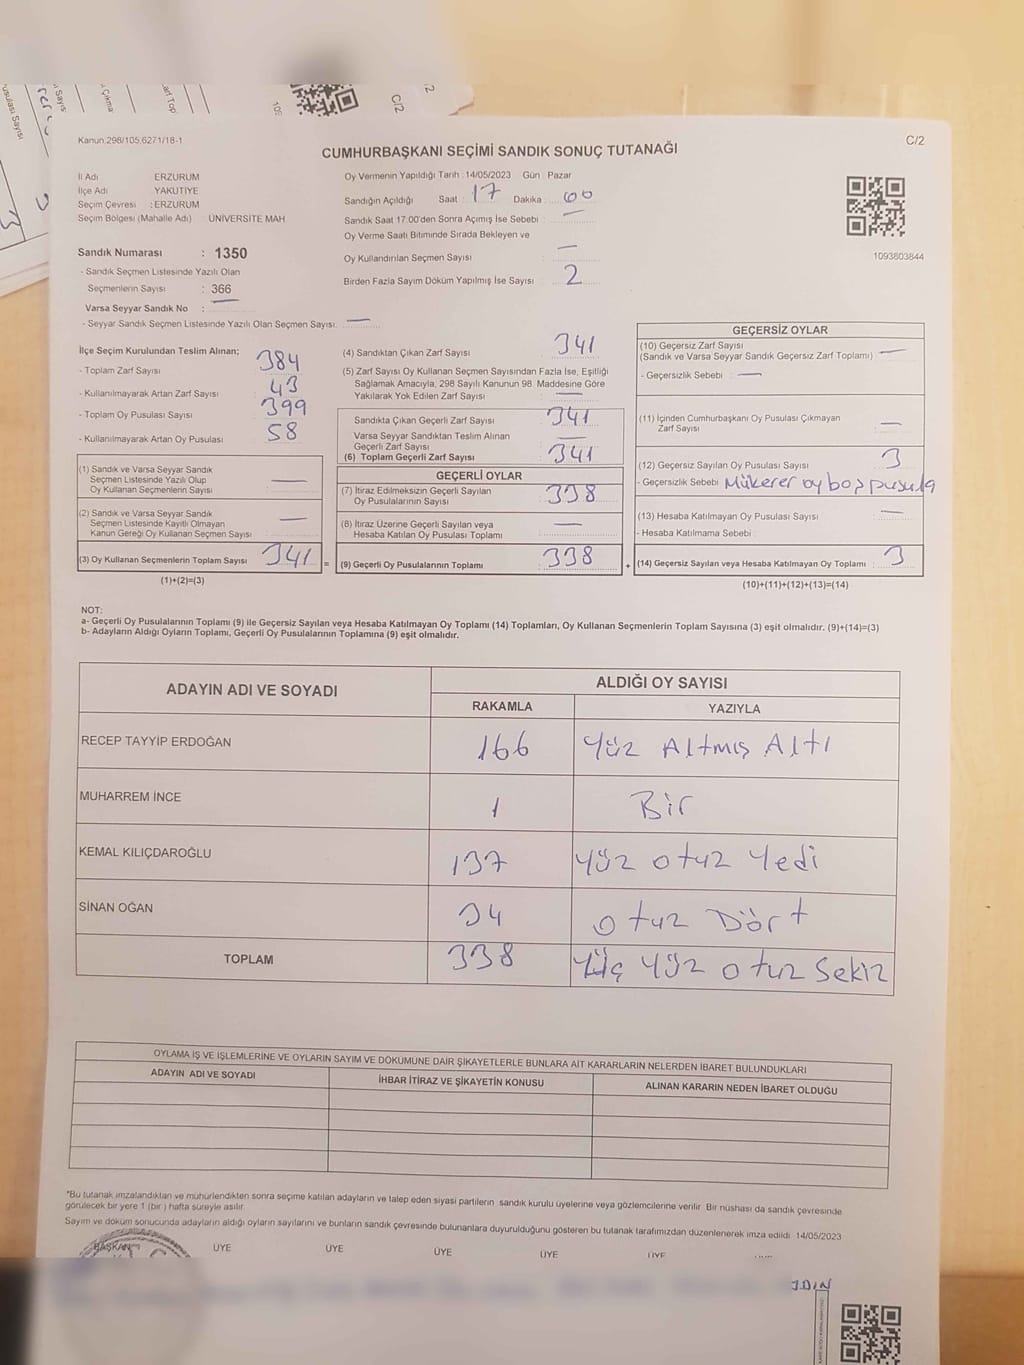 Kanun:298/105,6271/18-1
C/2
CUMHURBAŞKANI SEÇİMİ SANDIK SONUÇ TUTANAĞI
İl Adı ERZURUM
İlçe Adı YAKUTİYE
Seçim Çevresi : ERZURUM
Seçim Bölgesi (Mahalle Adı) : ÜNİVERSİTE MAH
Sandık Numarası : 1350
- Sandık Seçmen Listesinde Yazılı Olan
Seçmenlerin Sayısı : 366
Varsa Seyyar Sandık No : —
- Seyyar Sandık Seçmen Listesinde Yazılı Olan Seçmen Sayısı: —
Oy Vermenin Yapıldığı Tarih : 14/05/2023 Gün : Pazar
Sandığın Açıldığı Saat : 17 Dakika : 00
Sandık Saat 17.00'den Sonra Açımış İse Sebebi : —
Oy Verme Saati Bitiminde Sırada Bekleyen ve
Oy Kullandırılan Seçmen Sayısı : —
Birden Fazla Sayım Döküm Yapılmış İse Sayısı : 2
1093803844
İlçe Seçim Kurulundan Teslim Alınan;
- Toplam Zarf Sayısı : 384
- Kullanılmayarak Artan Zarf Sayısı : 43
- Toplam Oy Pusulası Sayısı : 399
- Kullanılmayarak Artan Oy Pusulası : 58
(1) Sandık ve Varsa Seyyar Sandık
Seçmen Listesinde Yazılı Olup
Oy Kullanan Seçmenlerin Sayısı : —
(2) Sandık ve Varsa Seyyar Sandık
Seçmen Listesinde Kayıtlı Olmayan
Kanun Gereği Oy Kullanan Seçmen Sayısı : —
(3) Oy Kullanan Seçmenlerin Toplam Sayısı : 341
(1)+(2)=(3)
(4) Sandıktan Çıkan Zarf Sayısı : 341
(5) Zarf Sayısı Oy Kullanan Seçmen Sayısından Fazla İse, Eşitliği
Sağlamak Amacıyla, 298 Sayılı Kanunun 98. Maddesine Göre
Yakılarak Yok Edilen Zarf Sayısı : —
Sandıkta Çıkan Geçerli Zarf Sayısı : 341
Varsa Seyyar Sandıktan Teslim Alınan
Geçerli Zarf Sayısı : —
(6) Toplam Geçerli Zarf Sayısı : 341
GEÇERLİ OYLAR
(7) İtiraz Edilmeksizin Geçerli Sayılan
Oy Pusulalarının Sayısı : 338
(8) İtiraz Üzerine Geçerli Sayılan veya
Hesaba Katılan Oy Pusulası Toplamı : —
= (9) Geçerli Oy Pusulalarının Toplamı : 338
GEÇERSİZ OYLAR
(10) Geçersiz Zarf Sayısı
(Sandık ve Varsa Seyyar Sandık Geçersiz Zarf Toplamı) : —
- Geçersizlik Sebebi : —
(11) İçinden Cumhurbaşkanı Oy Pusulası Çıkmayan
Zarf Sayısı : —
(12) Geçersiz Sayılan Oy Pusulası Sayısı : 3
- Geçersizlik Sebebi Mükerer oy boş pusula
(13) Hesaba Katılmayan Oy Pusulası Sayısı : —
- Hesaba Katılmama Sebebi :
+ (14) Geçersiz Sayılan veya Hesaba Katılmayan Oy Toplamı : 3
(10)+(11)+(12)+(13)=(14)
NOT:
a- Geçerli Oy Pusulalarının Toplamı (9) ile Geçersiz Sayılan veya Hesaba Katılmayan Oy Toplamı (14) Toplamları, Oy Kullanan Seçmenlerin Toplam Sayısına (3) eşit olmalıdır. (9)+(14)=(3)
b- Adayların Aldığı Oyların Toplamı, Geçerli Oy Pusulalarının Toplamına (9) eşit olmalıdır.
ADAYIN ADI VE SOYADI
ALDIĞI OY SAYISI
RAKAMLA YAZIYLA
RECEP TAYYİP ERDOĞAN 166 Yüz Altmış Altı
MUHARREM İNCE 1 Bir
KEMAL KILIÇDAROĞLU 137 Yüz otuz Yedi
SİNAN OĞAN 34 otuz Dört
TOPLAM 338 Üç Yüz otuz Sekiz
OYLAMA İŞ VE İŞLEMLERİNE VE OYLARIN SAYIM VE DÖKÜMÜNE DAİR ŞİKAYETLERLE BUNLARA AİT KARARLARIN NELERDEN İBARET BULUNDUKLARI
ADAYIN ADI VE SOYADI İHBAR İTİRAZ VE ŞİKAYETİN KONUSU ALINAN KARARIN NEDEN İBARET OLDUĞU
*Bu tutanak imzalandıktan ve mühürlendikten sonra seçime katılan adayların ve talep eden siyasi partilerin sandık kurulu üyelerine veya gözlemcilerine verilir. Bir nüshası da sandık çevresinde
görülecek bir yere 1 (bir) hafta süreyle asılır.
Sayım ve döküm sonucunda adayların aldığı oyların sayılarını ve bunların sandık çevresinde bulunanlara duyurulduğunu gösteren bu tutanak tarafımızdan düzenlenerek imza edildi. 14/05/2023
BAŞKAN ÜYE ÜYE ÜYE ÜYE ÜYE